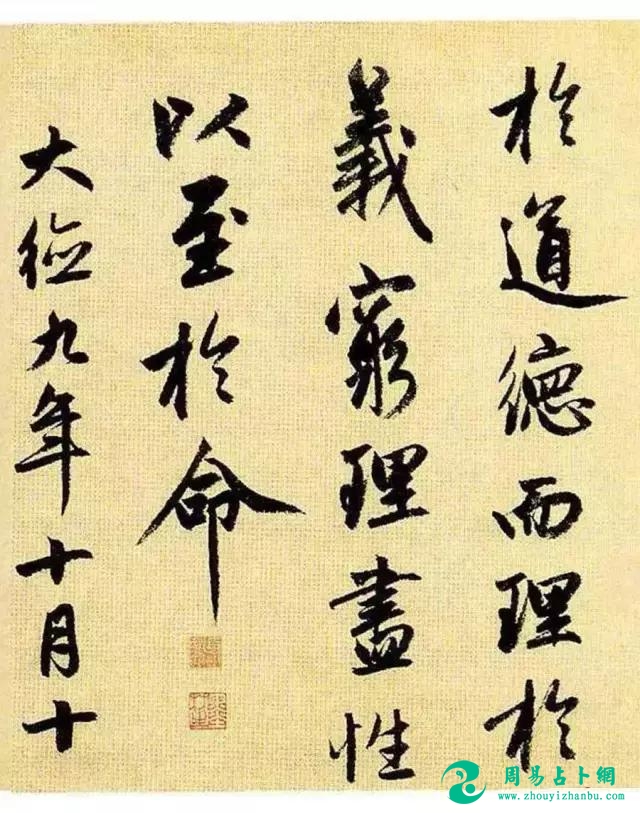 於道德而理於
義窮理盡性
以至於命
大德九年十月十
周易占卜網
www.zhouyizhanbu.com